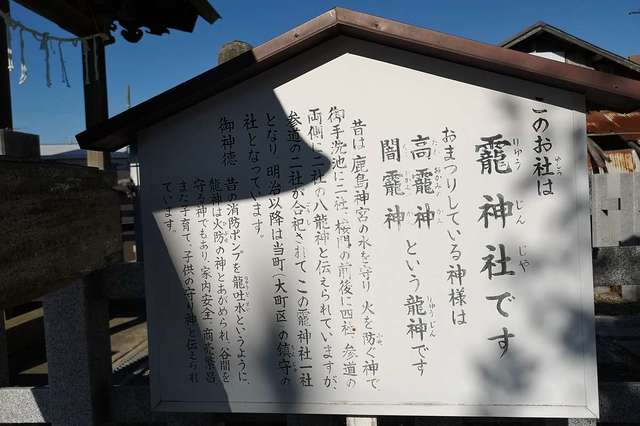 このお社は
龗神社です
おまつりしている神様は
高龗神
闇龗神
という龍神です
昔は鹿島神宮の水を守り 火を防ぐ神で
御手洗池に二社、楼門の前後に四社、参道の
両側に二社の八龍神と伝えられていますが、
参道の二社が合祀されて この龗神社一社
となり 明治以降は当町(大町区)の鎮守の
社となっています。
御神徳
昔の消防ポンプを龍吐水というように、
龍神は火防の神とあがめられ、谷間を
守る神でもあり、家内安全 商売繁昌
また子育て、子供の守り神と伝えられ
ています。